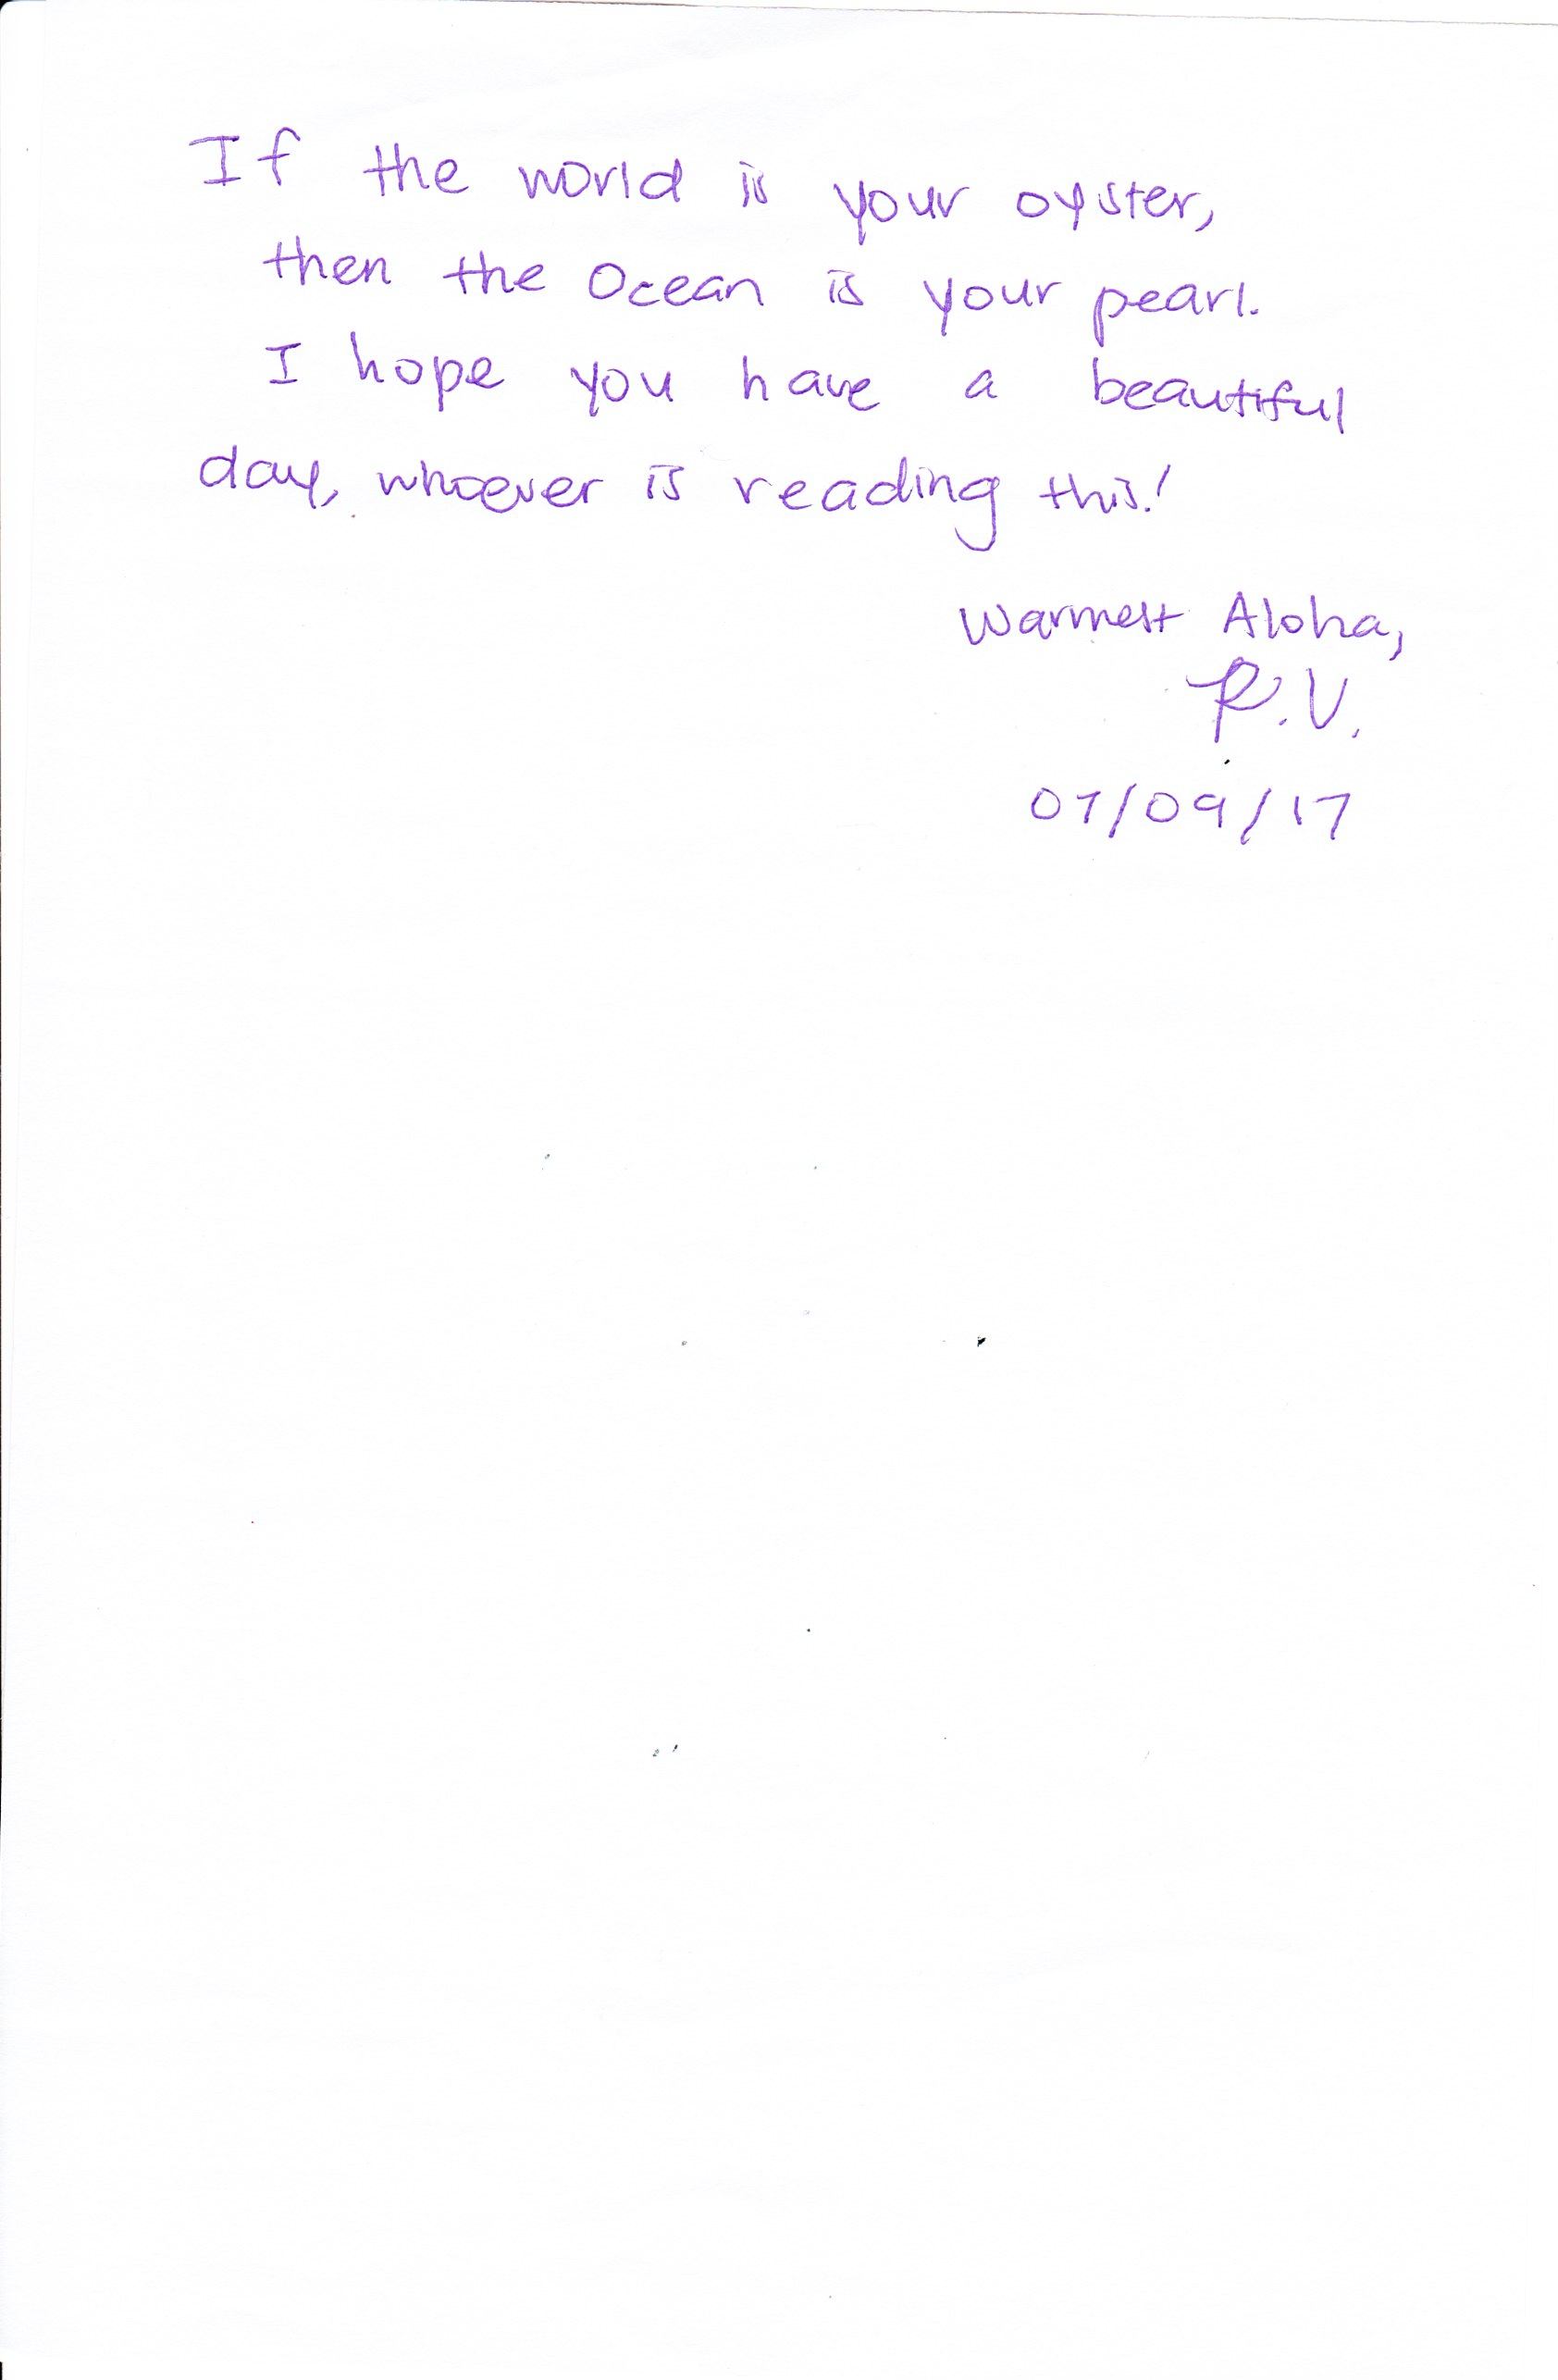 If the world is your oyster,
then the Ocean is your pearl.
I hope you have a beautiful
day, whoever is reading this!
Warmest Aloha,
R.V.
07/09/17